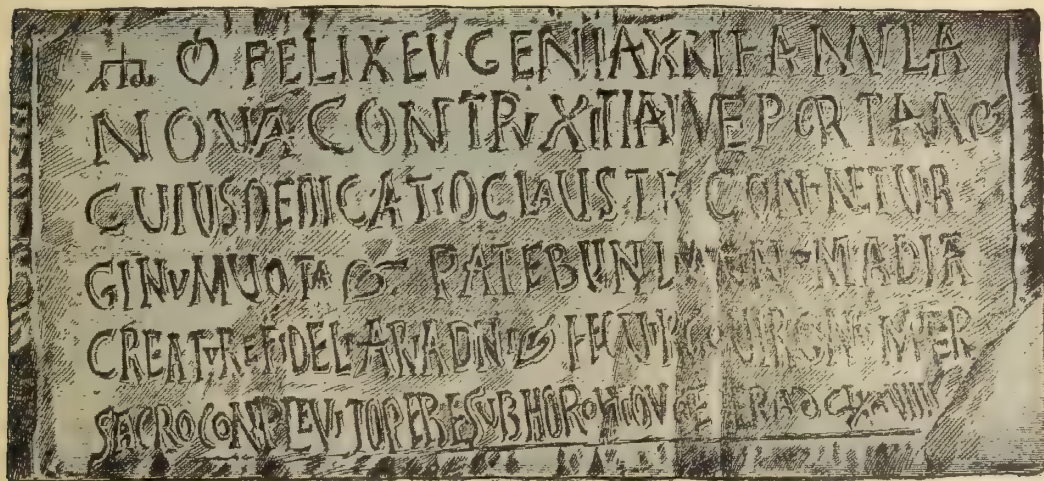 FELIX EUGENIA XRI FAMULA
NOVA CONTRUXIT IANUE PORTAM
CUIUS DEDICATIO CLAUSTRI CONTINETUR
GINUM UOTA PATEBUNT MADIA
CREATURE FIDELI ARIADNI UIRGINUM PER
SACRO CONPLEVIT OPERE SUB HORONTIO